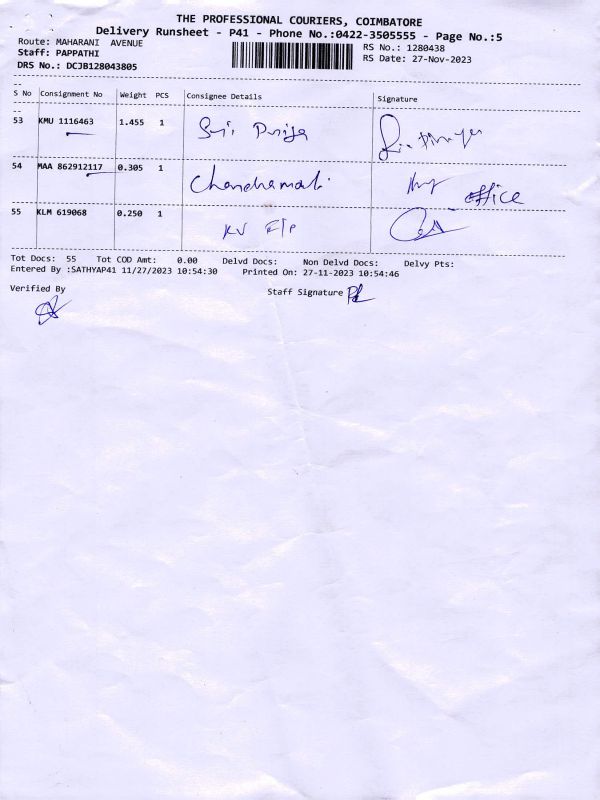 THE PROFESSIONAL COURIERS, COIMBATORE
Delivery Runsheet - P41 - Phone No.:0422-3505555 - Page No.:5
Route: MAHARANI AVENUE
RS No.: 1280438
Staff: PAPPATHI
RS Date: 27-Nov-2023
DRS No.: DCJB128043805
S No Consignment No Weight PCS Consignee Details Signature
53 KMU 1116463 1.455 1 Sri Priya
54 MAA 862912117 0.305 1 office
55 KLM 619068 0.250 1 KV
Tot Docs: 55 Tot COD Amt: 0.00 Delvd Docs: Non Delvd Docs: Delvy Pts:
Entered By :SATHYAP41 11/27/2023 10:54:30 Printed On: 27-11-2023 10:54:46
Verified By Staff Signature